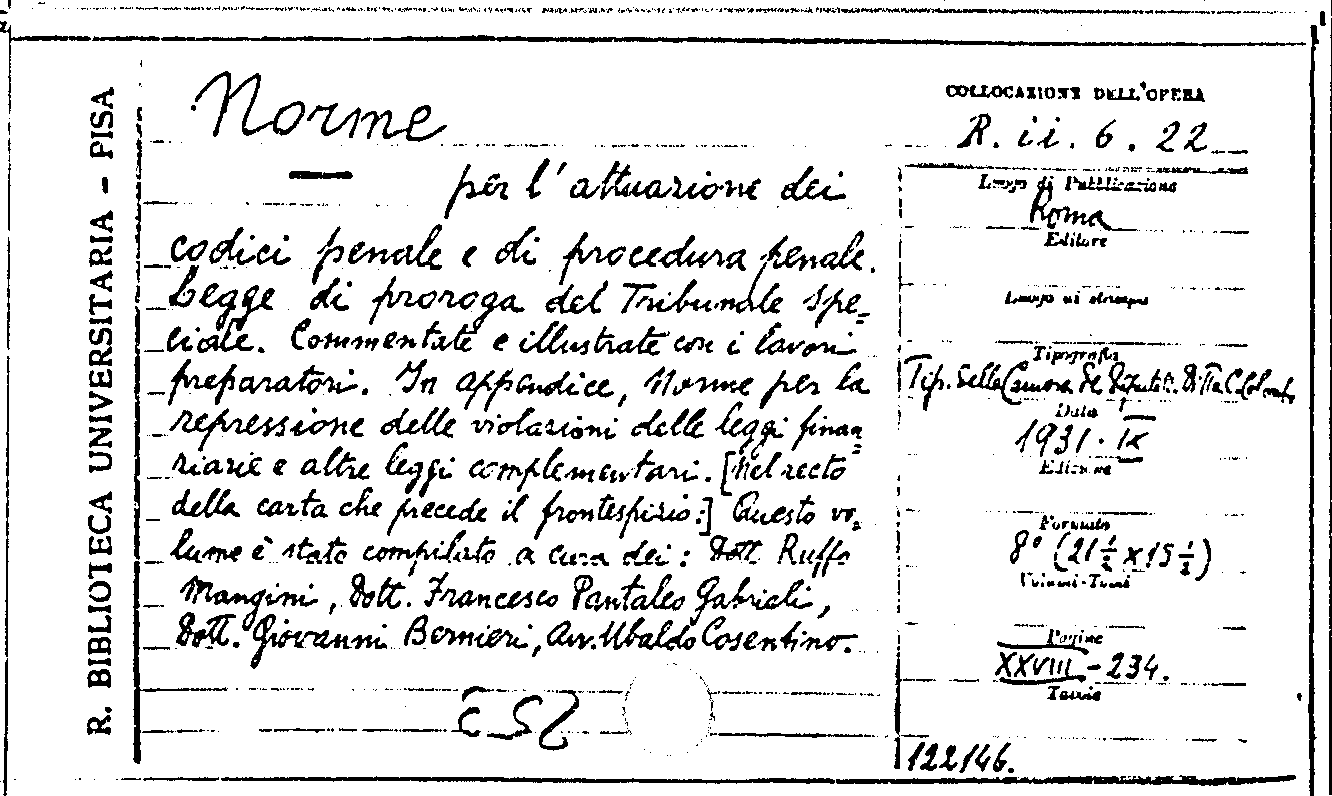 R. BIBLIOTECA UNIVERSITARIA - PISA
Norme
per l'attuazione dei
codici penale e di procedura penale.
Legge di proroga del Tribunale Spe=
ciale. Commentate e illustrate con i lavori
preparatori. In appendice, Norme per la
repressione delle violazioni delle leggi finan=
ziarie e altre leggi complementari. [Nel recto
della carta che precede il frontespizio:] Questo vo=
lume è stato compilato a cura dei: Dott. Ruffo
Mangini, Dott. Francesco Pantaleo Gabrieli,
Dott. Giovanni Bernieri, Avv. Ubaldo Cosentino.
COLLOCAZIONE DELL'OPERA
R. ii. 6. 22
Luogo di Pubblicazione
Roma
Editore
Luogo di stampa
Tipografia
Tip. della Camera de' Deputati. Ditta C. Colombo
Data
1931. IX
Edizione
Formato
8° (21 1/2 x 15 1/2)
Volumi-Tomi
Pagine
XXVIII - 234.
Tavole
122146.